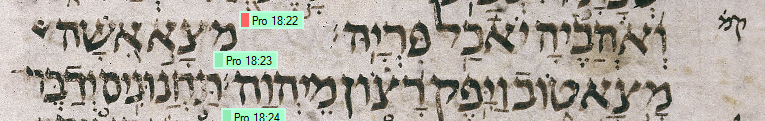 ואהביה יאכל פריה Pro 18:22 מצא אשה קמ
Pro 18:23
מצא טוב ויפק רצון מיהוה תחנונים ידבר
Pro 18:24